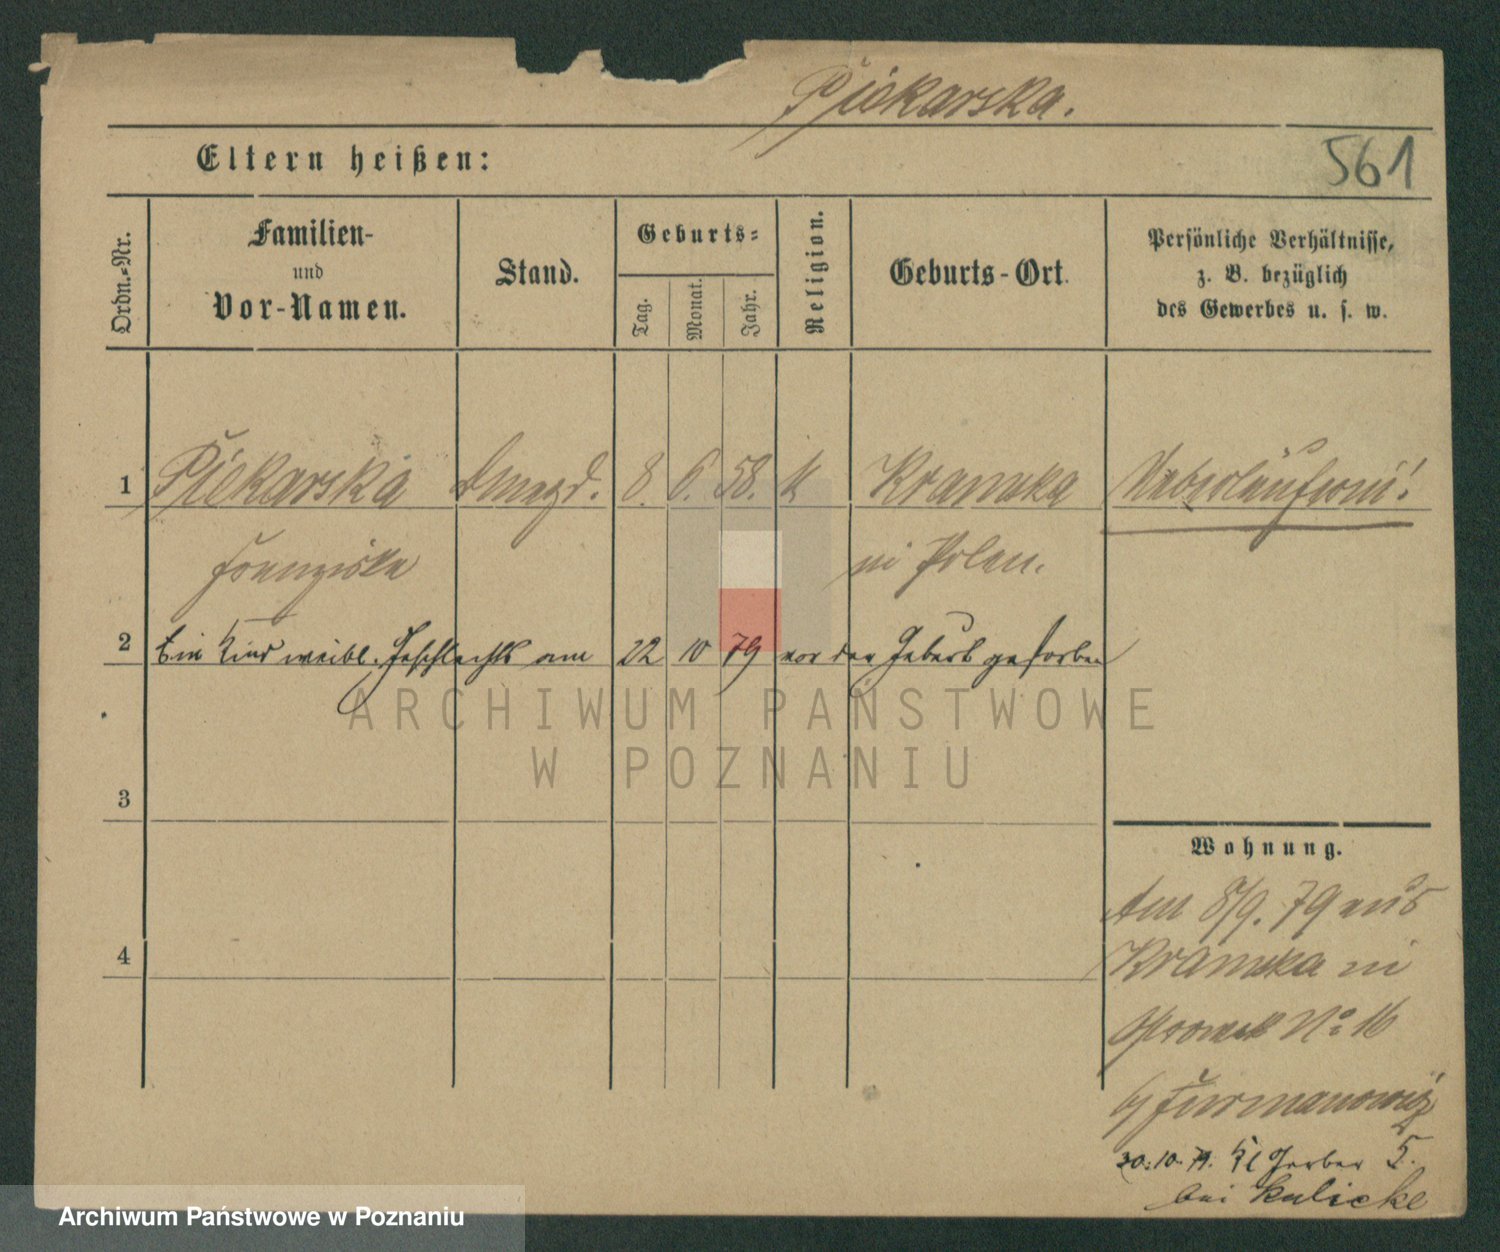 Piekarska.
Eltern heißen:
561
Ordn.-Nr.
Familien-
und
Vor-Namen.
Stand.
Geburts-
Tag.
Monat.
Jahr.
Religion.
Geburts-Ort.
Persönliche Verhältnisse,
z. B. bezüglich
des Gewerbes u. s. w.
1 Piekarska 8. 6. 58. k Kramska Ueberläuferin!
Franziska in Polen.
2 Ein Kind weibl. Geschlechts am 22 10 79 vor der Geburt gestorben
3
4
Wohnung.
Am 8/9. 79 aus
Kramska in
No 16
b/ Furmanowicz
30.10.79. Kl Gerber 5.
bei Kulicke
ARCHIWUM PAŃSTWOWE
W POZNANIU
Archiwum Państwowe w Poznaniu